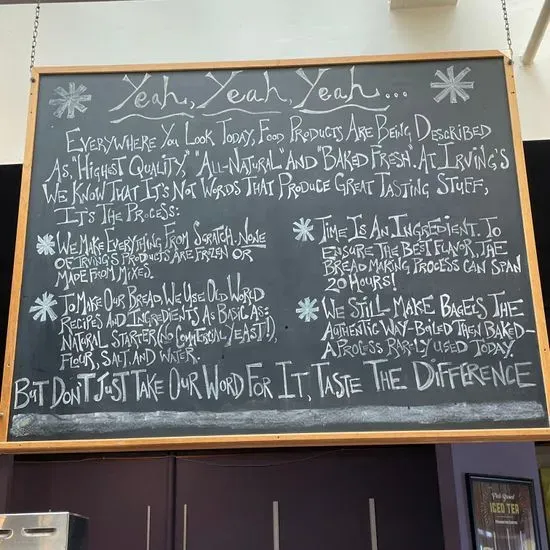 Yeah, Yeah, Yeah...
EVERYWHERE YOU LOOK TODAY, FOOD PRODUCTS ARE BEING DESCRIBED
AS, "HIGHEST QUALITY," "ALL-NATURAL" AND "BAKED FRESH". AT IRVING'S
WE KNOW THAT IT'S NOT WORDS THAT PRODUCE GREAT TASTING STUFF,
IT'S THE PROCESS:
WE MAKE EVERYTHING FROM SCRATCH. NONE
OF IRVING'S PRODUCTS ARE FROZEN OR
MADE FROM MIXES.
TO MAKE OUR BREAD, WE USE OLD WORLD
RECIPES AND INGREDIENTS AS BASIC AS:
NATURAL STARTER (NO COMMERCIAL YEAST!),
FLOUR, SALT, AND WATER.
TIME IS AN INGREDIENT. TO
ENSURE THE BEST FLAVOR, THE
BREAD MAKING PROCESS CAN SPAN
20 HOURS!
WE STILL MAKE BAGELS THE
AUTHENTIC WAY-BOILED THEN BAKED-
A PROCESS RARELY USED TODAY.
BUT DON'T JUST TAKE OUR WORD FOR IT, TASTE THE DIFFERENCE
ICED TEA